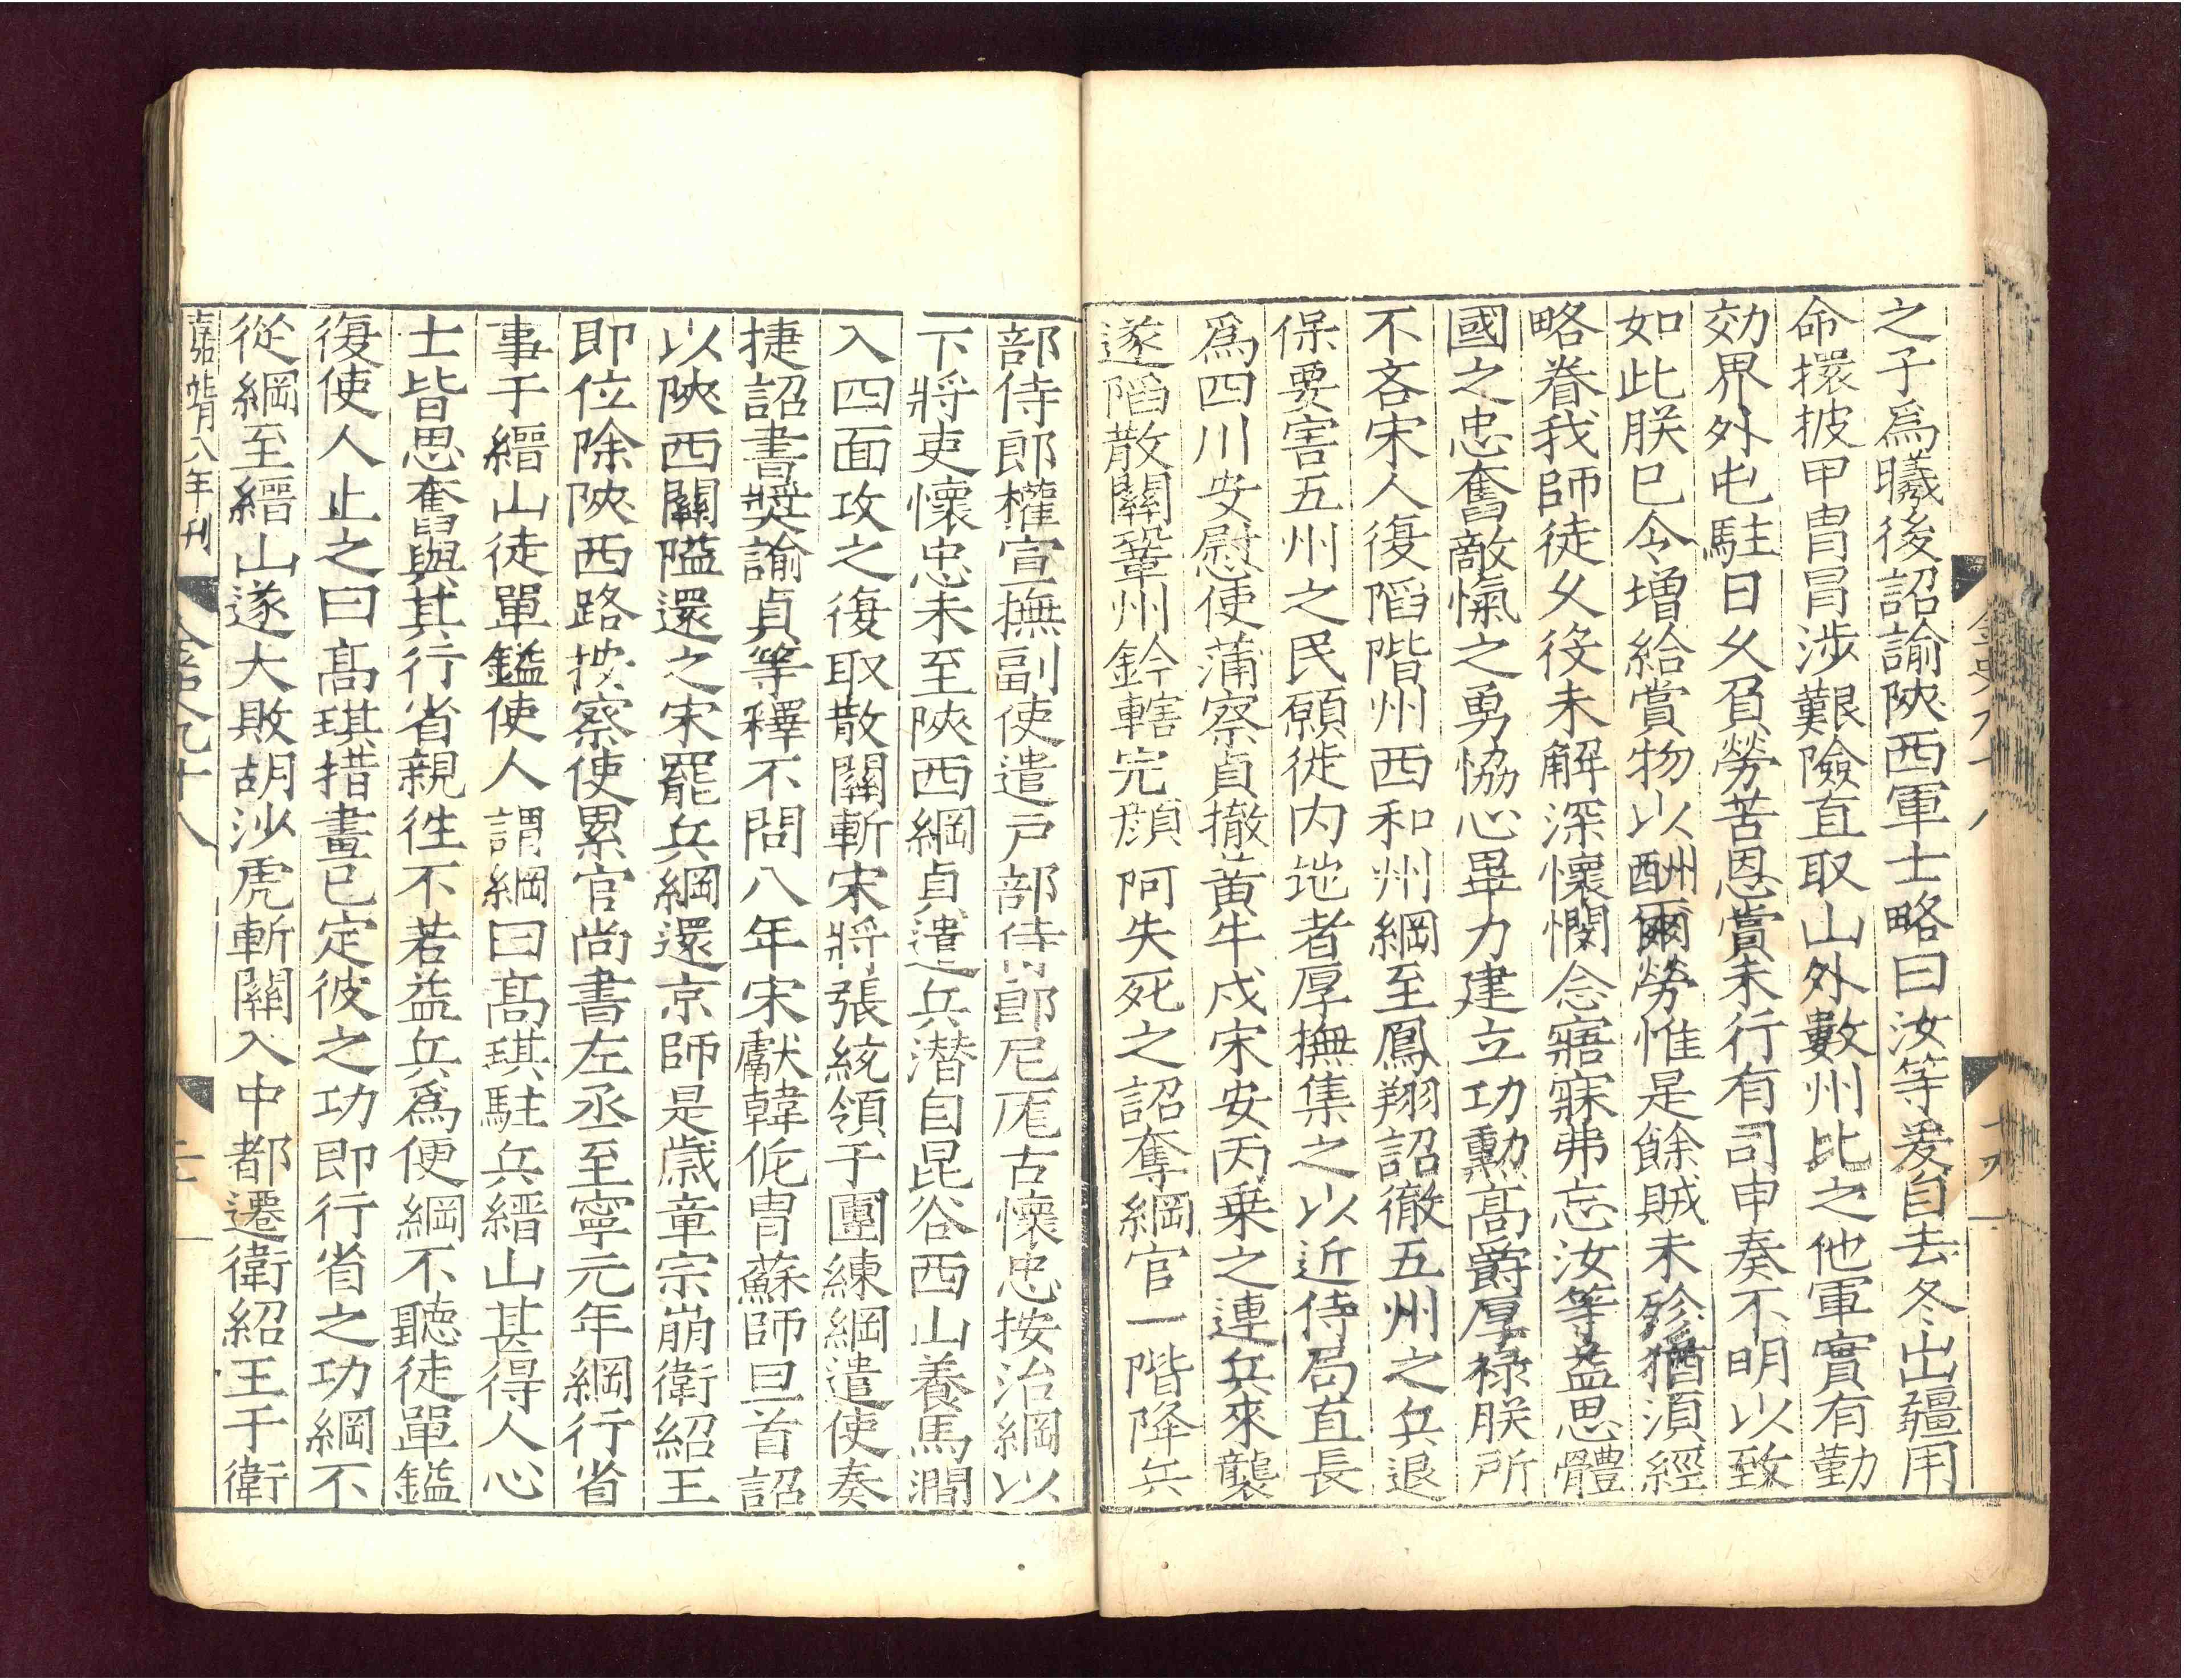 之子爲曦後詔諭陝西軍士略曰汝等爰自去冬出疆用
命擐披甲冑冒涉艱險直取山外數州比之他軍實有勤
効界外屯駐日乆負勞苦恩賞未行有司申奏不明以致
如此朕已令增給賞物以酬爾勞惟是餘賊未殄猶湏經
略眷我師徒乆役未解深懷憫念寤寐弗忘汝等益思體
國之忠奮敵愾之勇恊心畢力建立功勲髙爵厚禄朕所
不吝宋人復䧟階州西和州綱至鳳翔詔徹五州之兵退
保要害五州之民願徙内地者厚撫集之以近侍局直長
爲四川安慰使蒲察貞撤黃牛戍宋安丙乗之連兵來襲
遂䧟散關鞏州鈐轄完顔阿失死之詔奪綱官一階降兵
部侍郎權宣撫副使遣戸部侍郎尼厖古懷忠按治綱以
下將吏懷忠未至陝西綱貞遣兵潜自昆谷西山養馬澗
入四面攻之復取散關斬宋將張統領于團練綱遣使奏
捷詔書奬諭貞等釋不問八年宋獻韓侂冑蘇師旦首詔
以陝西關隘還之宋罷兵綱還京師是歳章宗崩衛紹王
即位除陝西路按察使累官尚書左丞至寧元年綱行省
事于縉山徒單鎰使人謂綱曰髙琪駐兵縉山甚得人心
士皆思奮與其行省親徃不若益兵爲便綱不聽徒單鎰
復使人止之曰髙琪措畫已定彼之功即行省之功綱不
從綱至縉山遂大敗胡沙虎斬關入中都遷衛紹王于衛
嘉靖八年刊
金史九十八